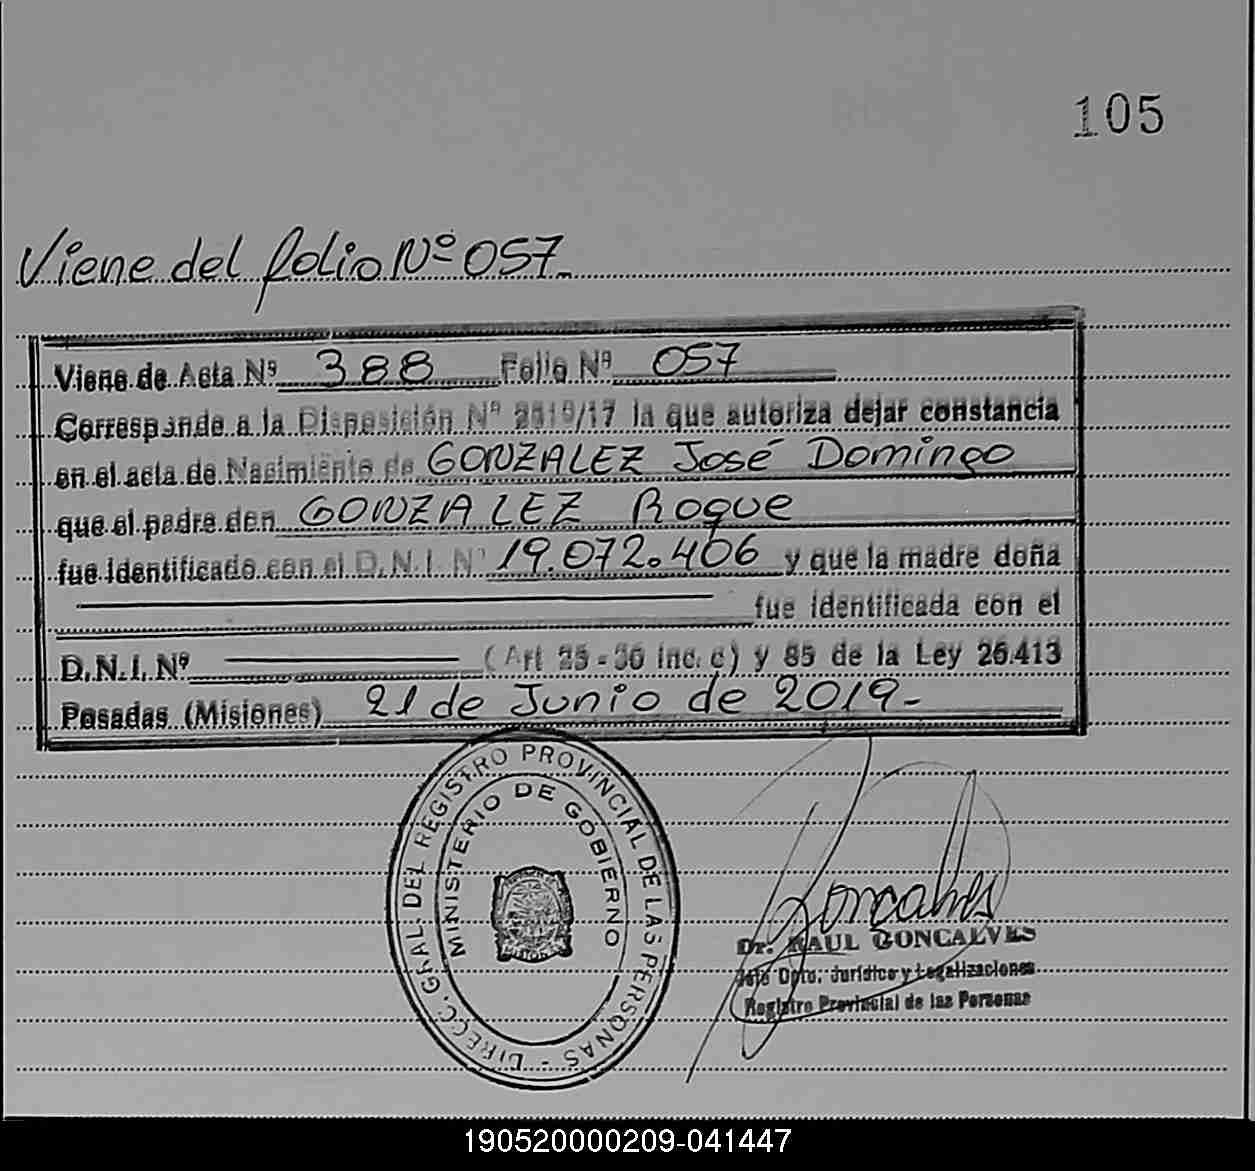 105
Viene del folio Nº 057.
Viene de Acta Nº 388 Folio Nº 057
Corresponde a la Disposición Nº 2519/17 la que autoriza dejar constancia
en el acta de Nacimiento de GONZALEZ José Domingo
que el padre don GONZALEZ Roque
fue identificado con el D.N.I. Nº 19.072.406 y que la madre doña
fue identificada con el
D.N.I. Nº (Art 25-36 inc. c) y 85 de la Ley 26.413
Posadas (Misiones) 21 de Junio de 2019-
DIRECC. GRAL. DEL REGISTRO PROVINCIAL DE LAS PERSONAS -
MINISTERIO DE GOBIERNO
Goncalves
Dr. RAUL GONCALVES
Jefe Dpto. Jurídico y Legalizaciones
Registro Provincial de las Personas
190520000209-041447